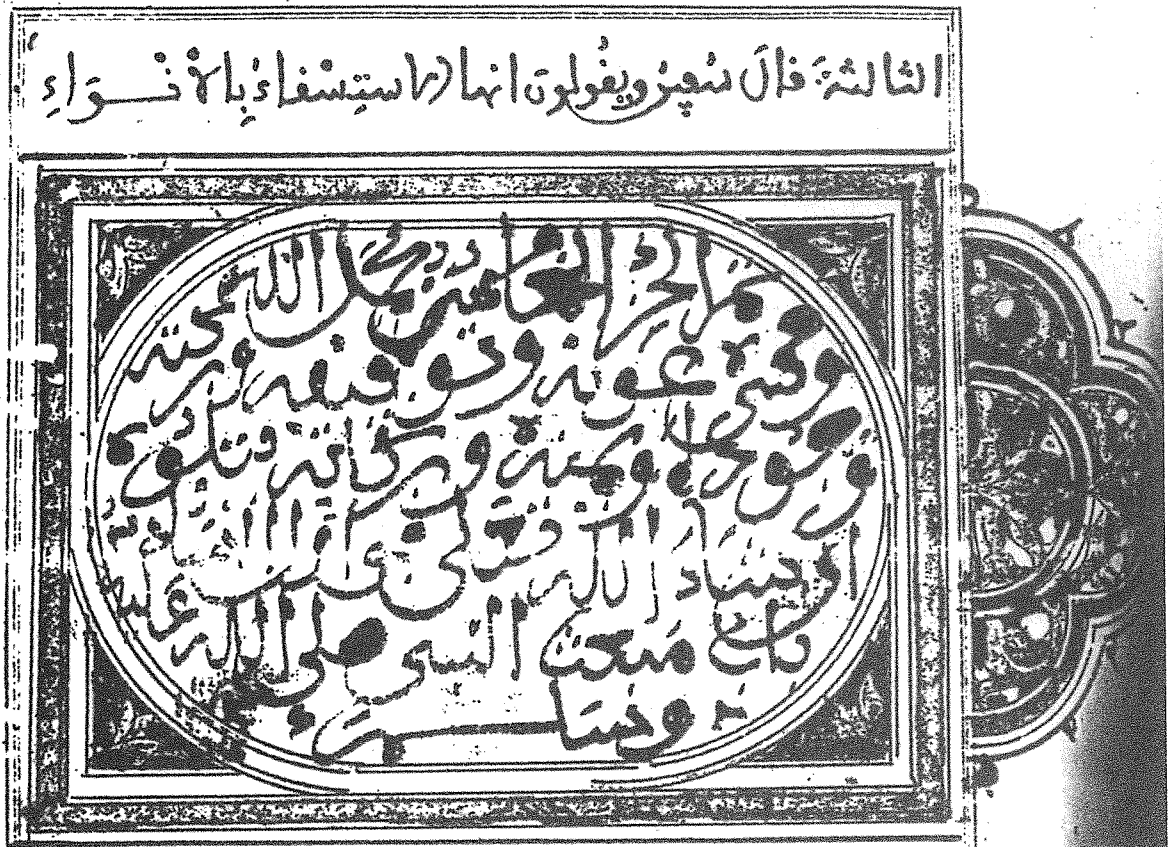 الثالثة قال سفين ويقولون انها الاستسقاء بالانواء
تم الجزء الخامس بحمد الله تعلى
وحسن عونه وتوفيقه
وقوته ويمنه وبركاته ويتلوه
ان شاء الله تعلى في اول السادس
باب مبعث النبي صلى الله عليه
وسلم